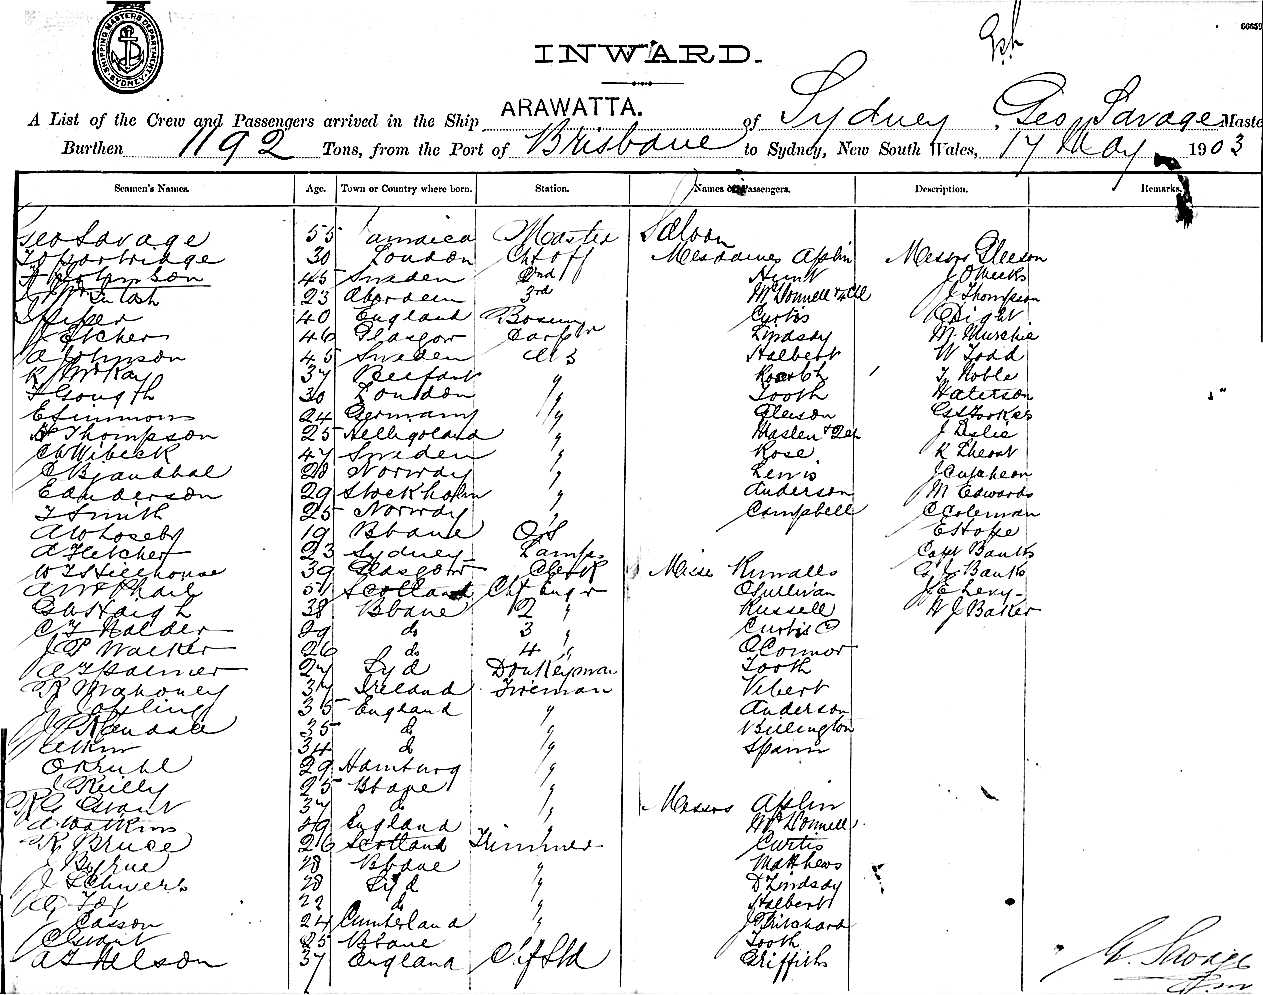 SHIPPING MASTERS DEPARTMENT SYDNEY
60659
INWARD.
A List of the Crew and Passengers arrived in the Ship ARAWATTA. of Sydney Geo Savage Maste
Burthen 1192 Tons, from the Port of Brisbane to Sydney, New South Wales, 17 May 1903
Seamen's Names. Age. Town or Country where born. Station. Names of Passengers. Description. Remarks.
Geo Savage 55 Jamaica Master Saloon
Partridge 30 London Cht off Mesdames Aplin Messrs Gleeson
Johnson 45 Sweden 2nd Hunt J O Weeks
23 Aberdeen 3rd McDonnell J Thompson
Piper 40 England Bosun Curtis Dight
Etcher 46 Glasgow Carptr Lindsay M Murchie
A Johnson 45 Sweden A B Halbert W Todd
R McKay 37 Belfast " T Noble
T Gough 30 London " Tooth H Aterson
E Simmons 24 Germany " Gleeson
H Thompson 25 Helligoland " Haslen J Leslie
C Wibeck 47 Sweden " Rose
Brandhal 28 Norway " Lewis J Cutcheon
E Anderson 29 Stockholm " Anderson M Edwards
T Smith 25 Norway " Campbell C Coleman
A W Loseby 19 Bbane O S E S Hope
A Fletcher 23 Sydney Lamps Capt Banks
W T Stillhouse 39 Glasgow Clerk Misses G J Banks
A McPhail 51 Scotland Cht Engr O'Sullivan
Gustaigh 38 Bbane 2 " Russell H J Baker
C T Halder 29 do 3 " Curtis C
J P Walker 26 do 4 " O'Connor
A T Palmer 27 Syd Donkeyman Tooth
Mahoney 37 Ireland Fireman Vibert
J Gosling 35 England " Anderson
J P Kendall 35 do " Billington
34 do " Spann
O Kruhl 29 Hamburg "
J Reilly 25 Bbane "
R G Grant 37 do " Messrs Aplin
A Watkins 49 England " McDonnell
R Bruce 26 Scotland Trimmer Curtis
J Byrne 28 Bbane " Matthews
J Schwerb 28 Syd " D Lindsay
Fox 22 do " Halbert
Casson 24 Cumberland " J Pritchard
C Grant 25 Bbane " Tooth
A T Nelson 37 England Chf Std Griffiths
G. Savage